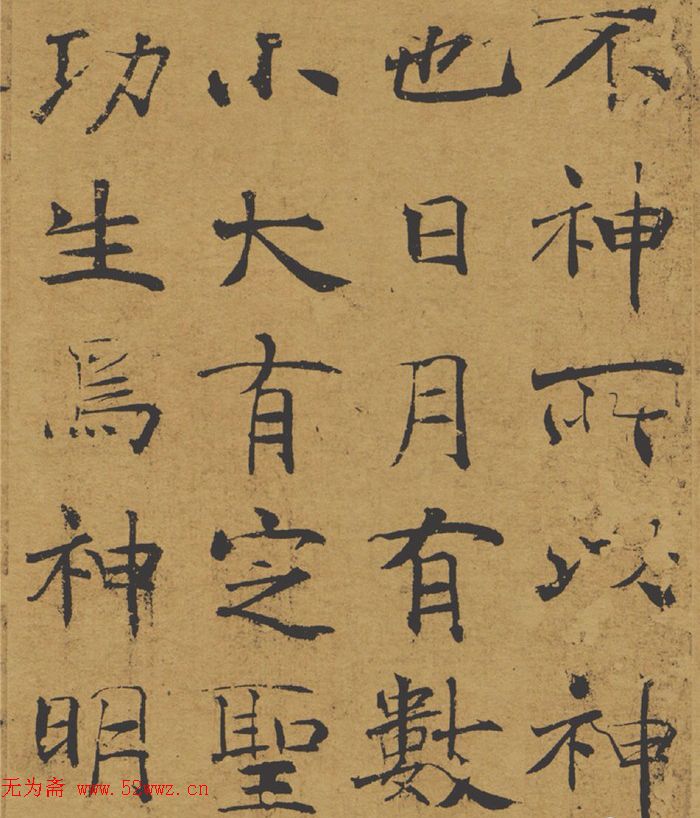 不神所以神
也日月有數
小大有定聖
功生焉神明
无为斋 www.52wwz.cn